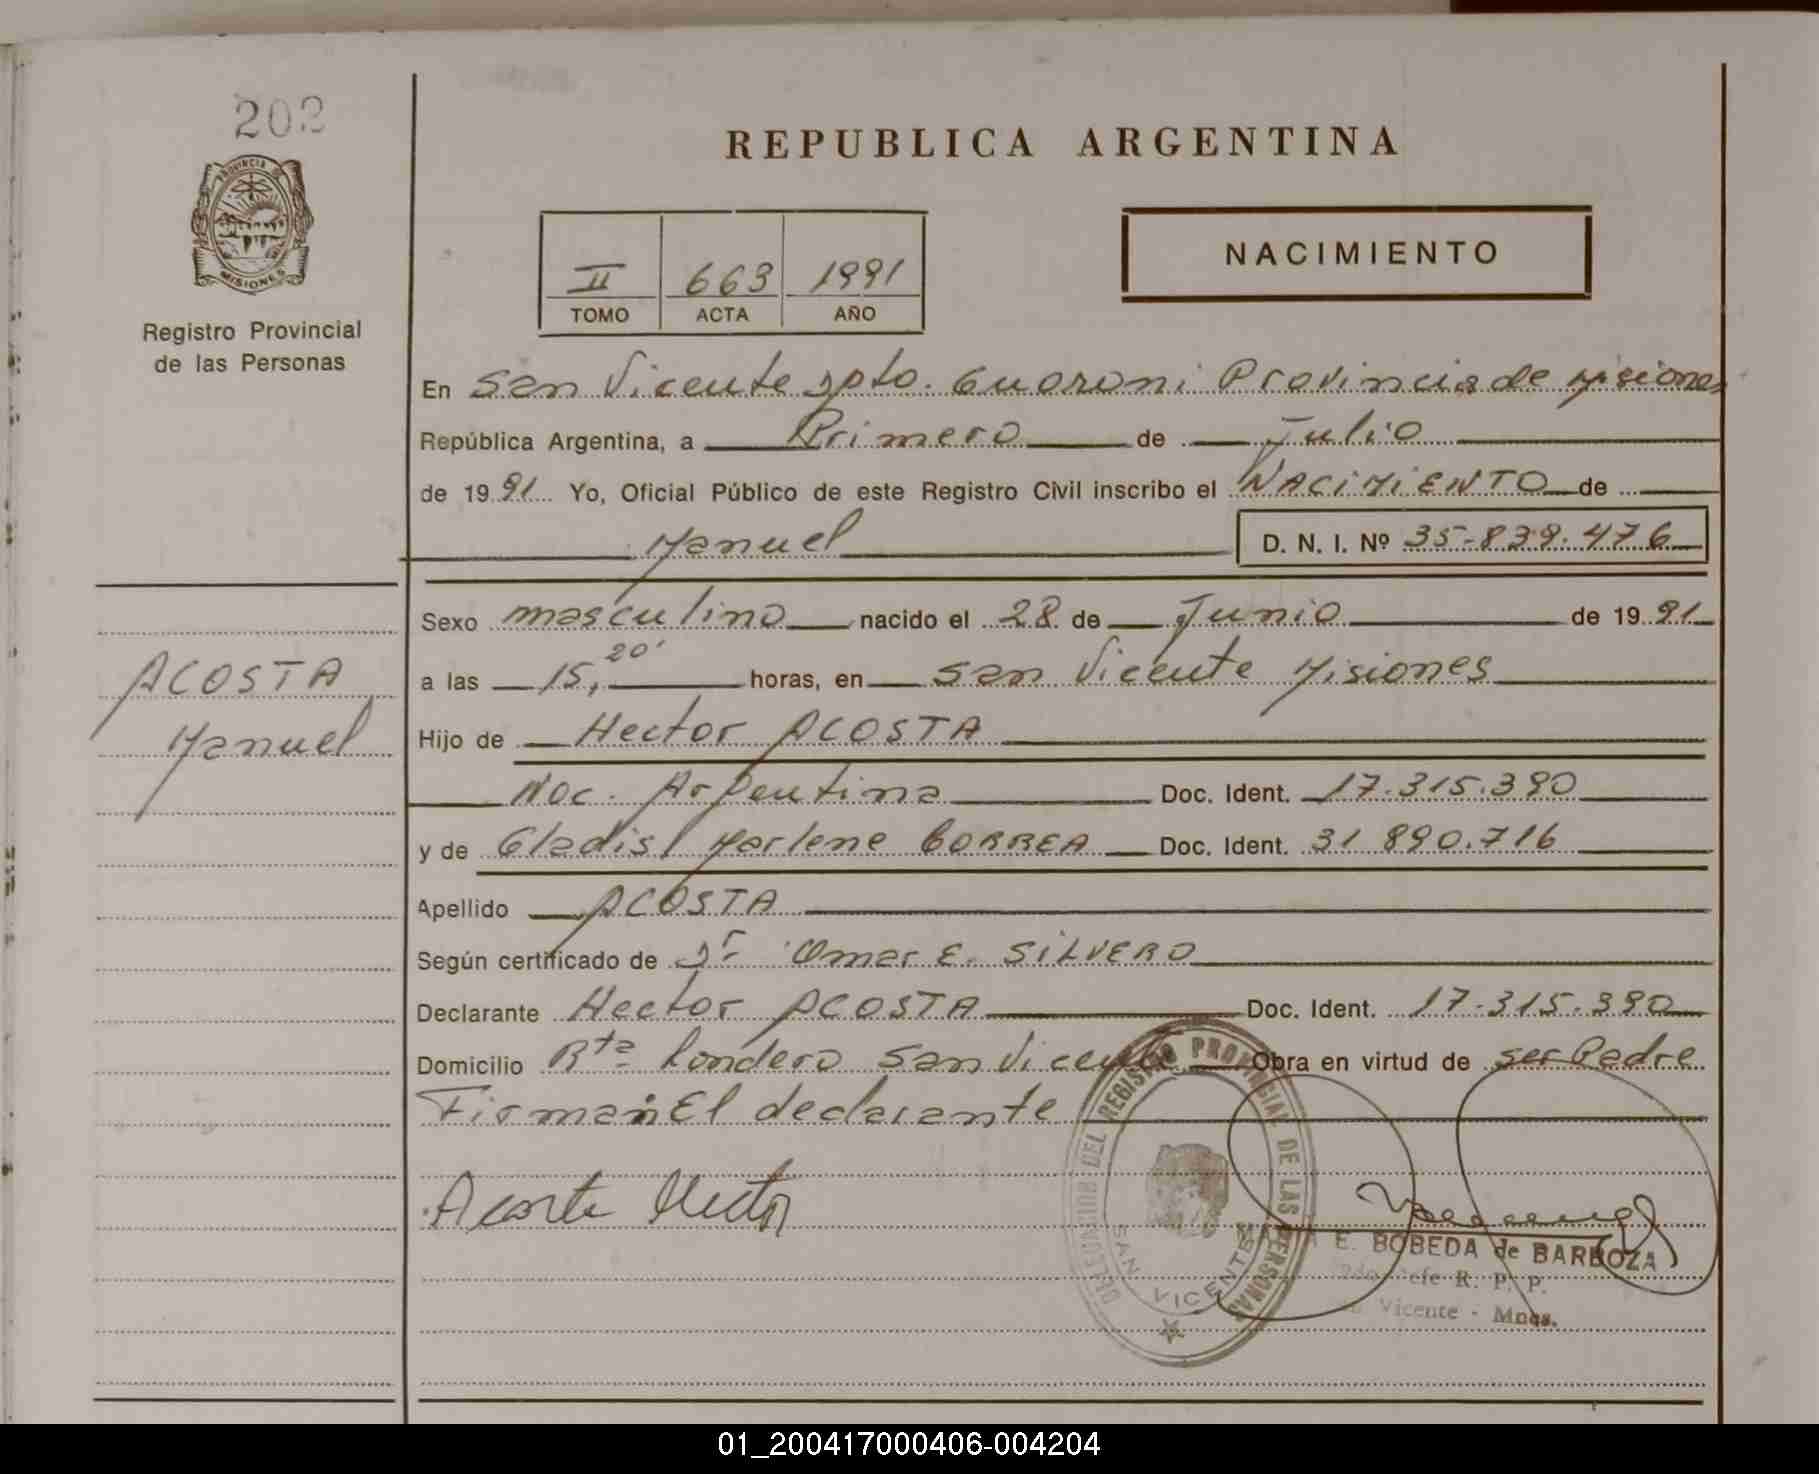 202
PROVINCIA DE
MISIONES
Registro Provincial
de las Personas
ACOSTA
Manuel
REPUBLICA ARGENTINA
II 663 1991
TOMO ACTA AÑO
NACIMIENTO
En San Vicente Dpto. Guarani Provincia de Misiones
República Argentina, a Primero de Julio
de 1991 Yo, Oficial Público de este Registro Civil inscribo el NACIMIENTO de
Manuel D. N. I. Nº 35-839.476
Sexo masculino nacido el 28 de Junio de 1991
a las 15,20' horas, en San Vicente Misiones
Hijo de Hector ACOSTA
Nac. Argentina Doc. Ident. 17.315.390
y de Gladis Marlene CORREA Doc. Ident. 31 890.716
Apellido ACOSTA
Según certificado de Dr Omar E. SILVERO
Declarante Hector ACOSTA Doc. Ident. 17.315.390
Domicilio Rta Londero San Vicente Obra en virtud de ser Padre
Firman El declarante
Acosta Hector
DELEGACION DEL REGISTRO PROVINCIAL DE LAS PERSONAS
SAN VICENTE
E. BOBEDA de BARBOZA
Jefe R. P. P.
Vicente - Mnes.
01_200417000406-004204